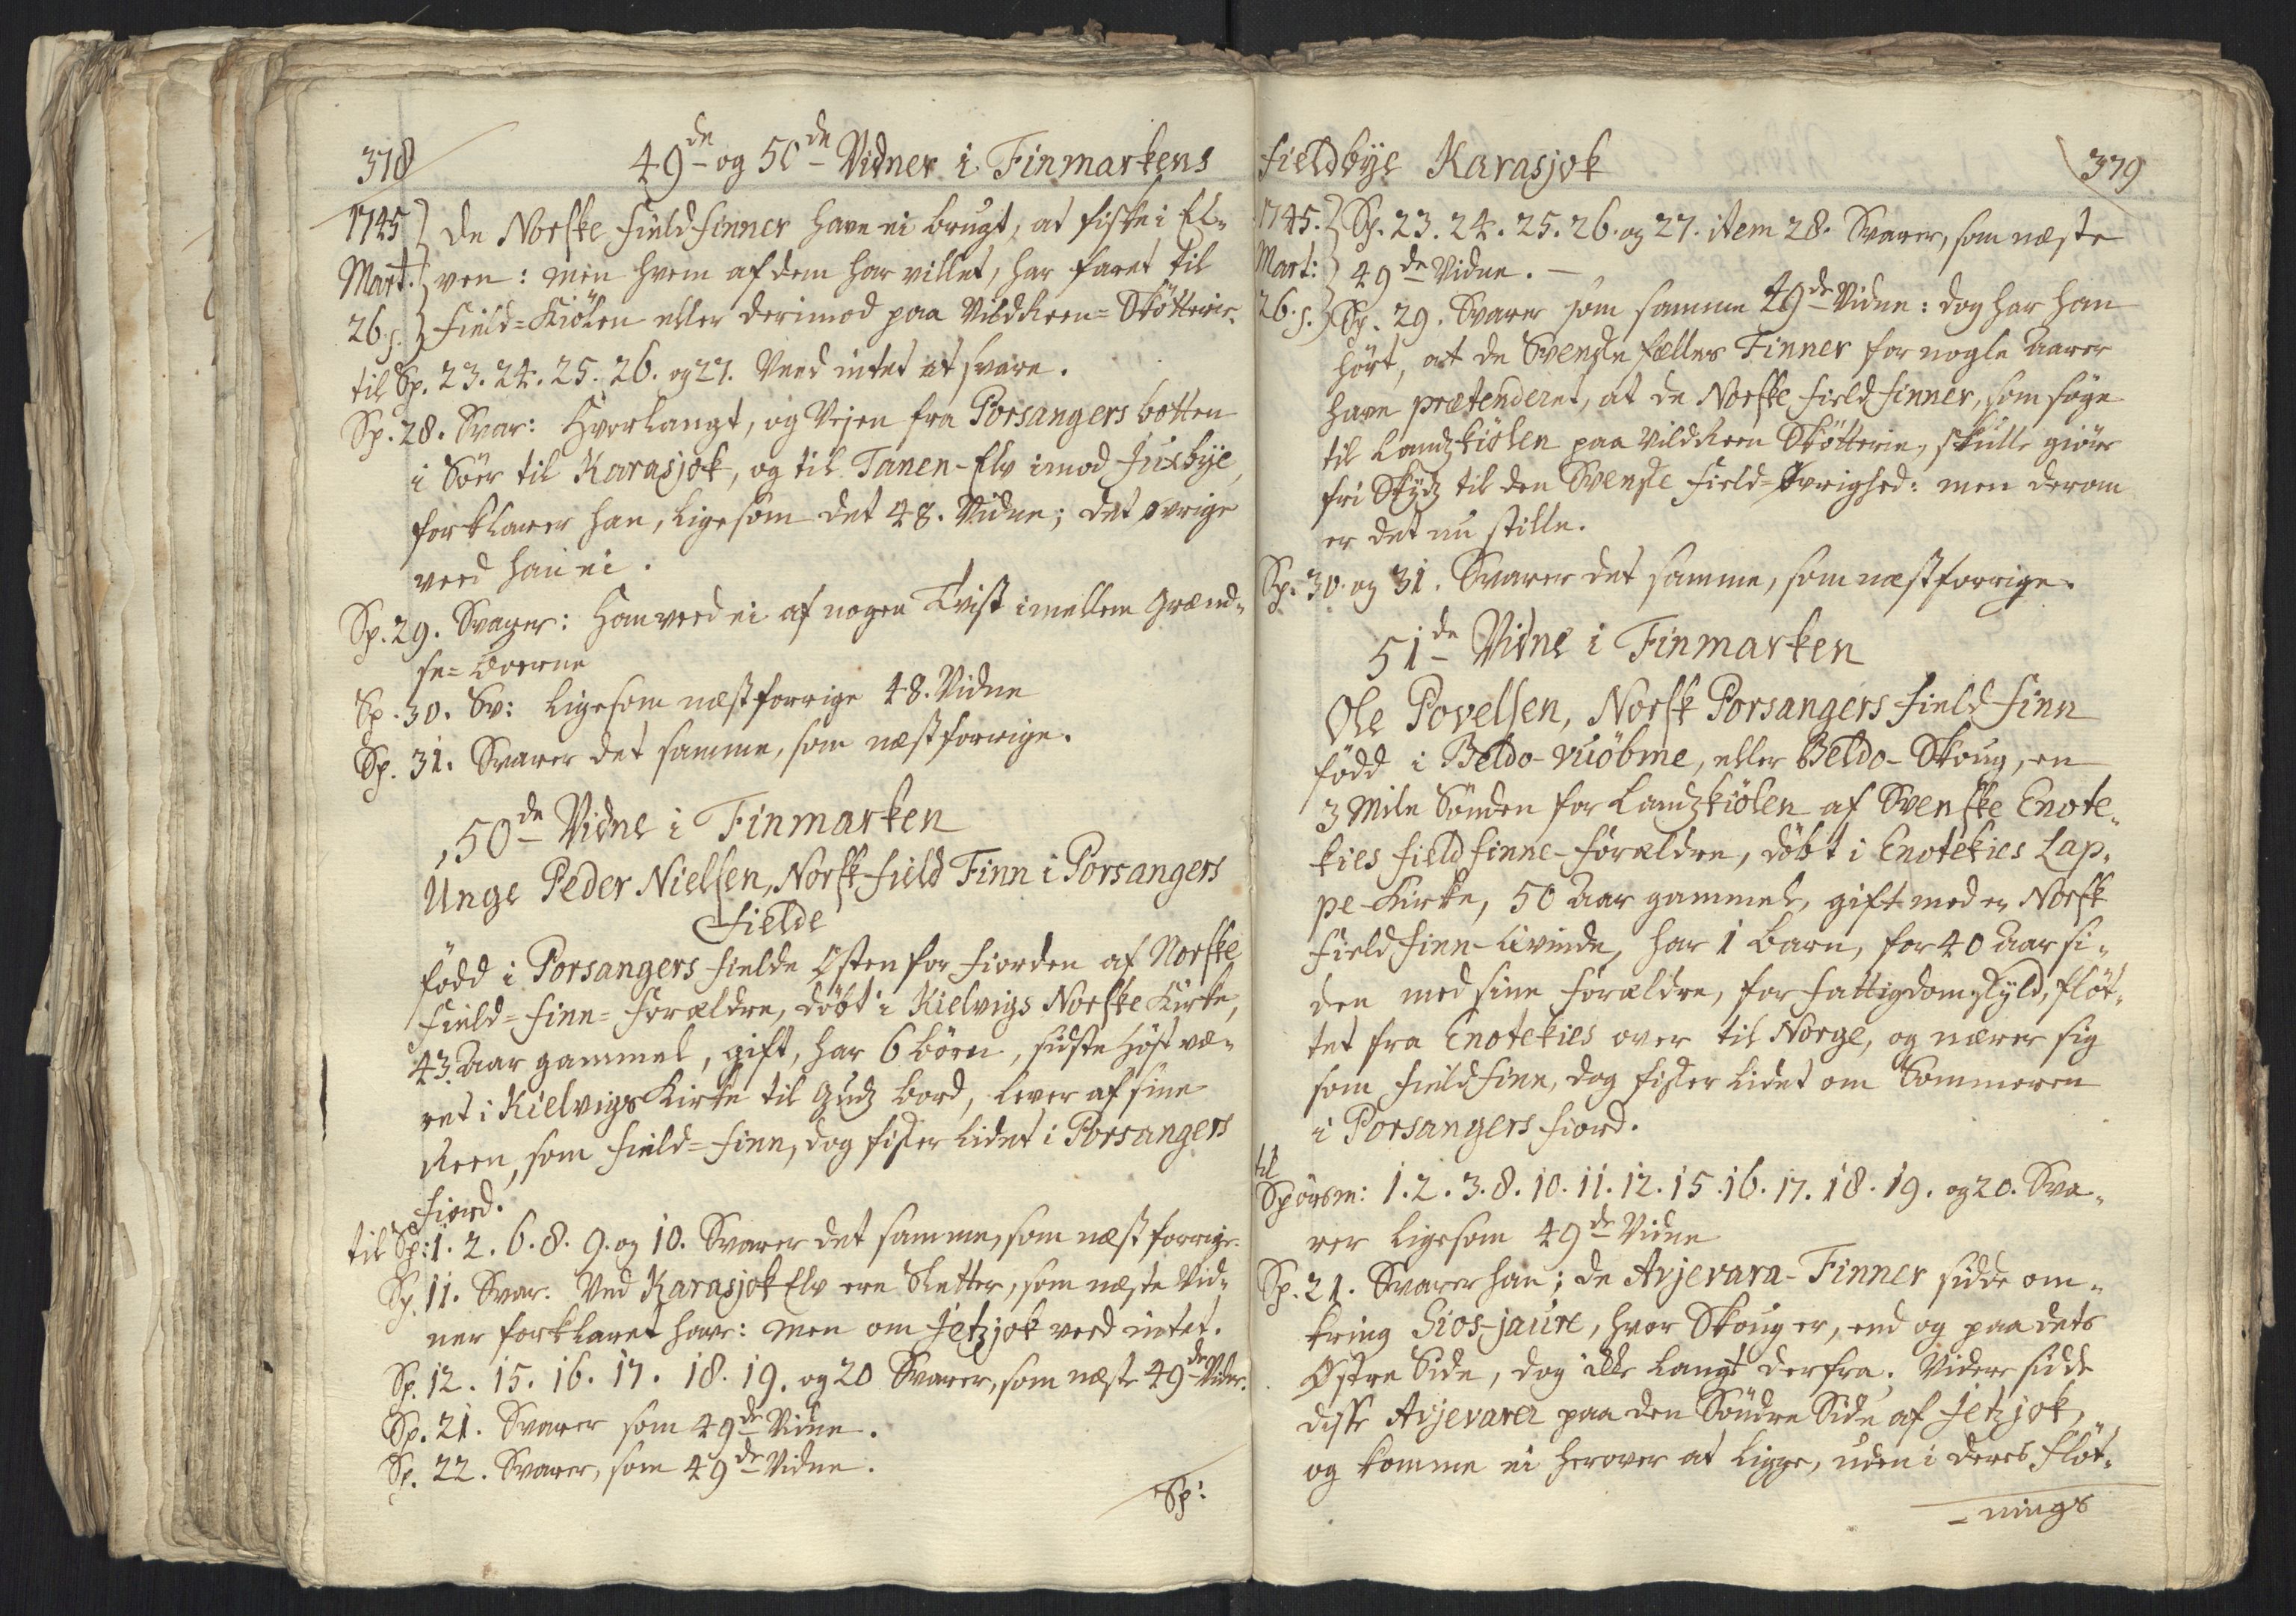 378
49de og 50de Vidner i Finmarkens
1745
Mart.
26.s.
de Norske Fieldfinner have ei brugt, at fiske i El-
ven: men hvem af dem har villet, har faret til
Field-Kiölen eller derimod paa Vildreen-Skötterie.
til Sp. 23. 24. 25. 26. og 27. Veed intet at svare.
Sp. 28. Svar: Hvorlangt, og Vejen fra Porsangers botten
i Sör til Karasjok, og til Tanen-Elv imod Juxbÿe,
forklarer han, ligesom det 48. Vidne; det övrige
veed han ei.
Sp. 29. Svarer: Han veed ei af nogen Tvist imellem Grænd-
se-Boerne
Sp. 30. Sv: ligesom næstforrige 48. Vidne
Sp. 31. Svarer det samme, som næstforrige.
50de Vidne i Finmarken
Unge Peder Nielsen, Norsk Field Finn i Porsangers
Fielde
född i Porsangers Fielde Østen for Fiorden af Norske
Field-Finn-Forældre, döbt i Kielvigs Norske Kirke,
43 Aar gammel, gift, har 6 börn, sidste Höst væ-
ret i Kielvigs Kirke til Gudz bord, lever af sine
Reen, som Field-Finn, dog fisker lidet i Porsangers
Fiord.
til Sp: 1. 2. 6. 8. 9. og 10. Svarer det samme, som næst forrige.
Sp. 11. Svar. Ved Karasjok Elv ere Sletter, som næste Vid-
ner forklaret have: men om Jetzjok veed intet.
Sp. 12. 15. 16. 17. 18. 19. og 20 Svarer, som næste 49de Vidne.
Sp. 21. Svarer som 49de Vidne.
Sp. 22. Svarer, som 49de Vidne.
Sp:
Fieldbÿe Karasjok
379
1745.
Mart:
26.s.
Sp. 23. 24. 25. 26. og 27. item 28. Svarer, som næste
49de Vidne.
Sp. 29. Svarer som samme 49de Vidne: dog har han
hört, at de Svenske fælles Finner for nogle Aarer
have prætenderet, at de Norske Fieldfinner, som søge
til Landzkiölen paa Vildreen Skötterie, skulle giöre
fri Skÿdz til den Svenske Field-Øvrighed: men derom
er det nu stille.
Sp. 30. og 31. Svarer det samme, som næstforrige.
51de Vidne i Finmarken
Ole Povelsen, Norsk Porsangers Field Finn
född i Beldo-vuöbme, eller Beldo-Skoug, en
3 Mile Sönden for Landzkiölen af Svenske Enote-
kies Fieldfinne-Forældre, döbt i Enotekies Lap-
pe-Kirke, 50 Aar gammel, gift med en Norsk
Fieldfinn-Qvinde, har 1 barn, for 40 Aar si-
den med sine Forældre, for Fattigdomskyld, flöt-
tet fra Enotekies over til Norge, og nærer sig
som Fieldfinn, dog fisker lidet om Sommeren
i Porsangers Fiord.
til
Spörsm: 1. 2. 3. 8. 10. 11. 12. 15. 16. 17. 18. 19. og 20. Sva-
rer ligesom 49de Vidne
Sp. 21. Svarer han; de Avjevara-Finner sidde om-
kring Gios-jaure, hvor Skoug er, end og paa dets
Østre Side, dog ikke langt derfra. Videre sidde
disse Avjevarer paa den Söndre Side af Jetzjok,
og komme ei herover at ligge, uden i deres Flöt-
-nings